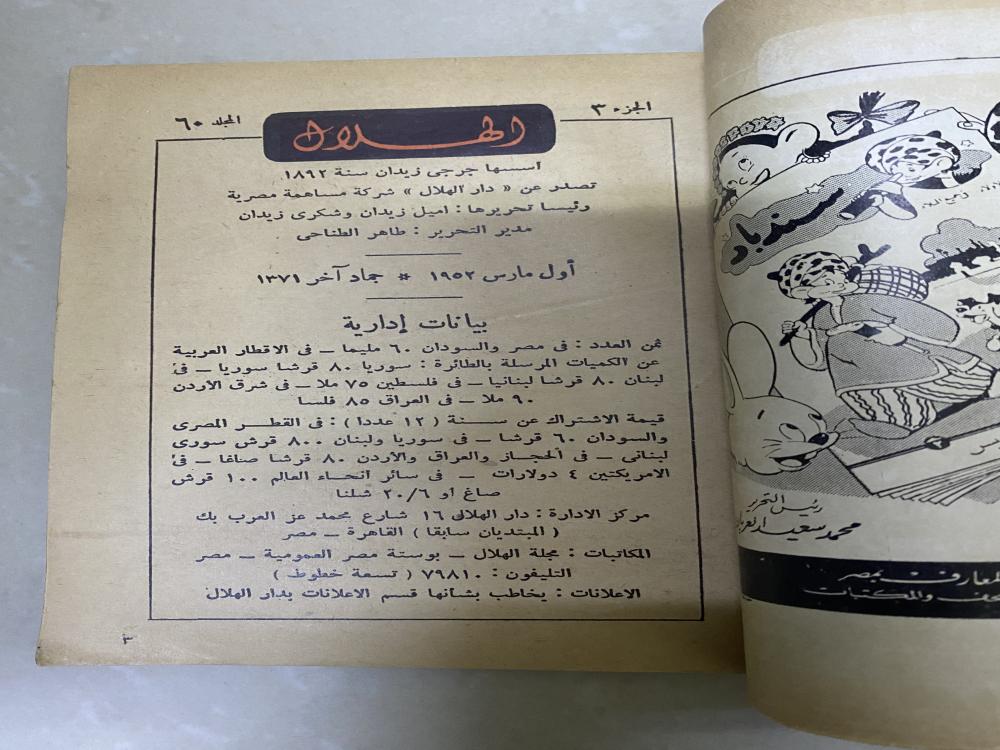 الجزء ٣
الهلال
المجلد ٦٠
أسسها جرجى زيدان سنة ١٨٩٢
تصدر عن « دار الهلال » شركة مساهمة مصرية
رئيسا تحريرها : اميل زيدان وشكرى زيدان
مدير التحرير : طاهر الطناحى
أول مارس ١٩٥٢ * جماد آخر ١٣٧١
بيانات إدارية
ثمن العدد : فى مصر والسودان ٦٠ مليما – فى الاقطار العربية
عن الكميات المرسلة بالطائرة : سوريا ٨٠ قرشا سوريا – فى
لبنان ٨٠ قرشا لبنانيا – فى فلسطين ٧٥ ملا – فى شرق الاردن
٩٠ ملا – فى العراق ٨٥ فلسا
قيمة الاشتراك عن سنة ( ١٢ عددا ) : فى القطر المصرى
والسودان ٦٠ قرشا – فى سوريا ولبنان ٨٠٠ قرش سورى
لبنانى – فى الحجاز والعراق والاردن ٨٠ قرشا صاغا – فى
الامريكتين ٤ دولارات – فى سائر انحاء العالم ١٠٠ قرش
صاغ او ٢٠/٦ شلنا
مركز الادارة : دار الهلال ١٦ شارع محمد عز العرب بك
( المبتديان سابقا ) القاهرة – مصر
المكاتبات : مجلة الهلال – بوستة مصر العمومية – مصر
التليفون : ٧٩٨١٠ ( تسعة خطوط )
الاعلانات : يخاطب بشأنها قسم الاعلانات بدار الهلال
٣
سندباد
رئيس التحرير
محمد سعيد العريان
المعارف بمصر
والمكتبات